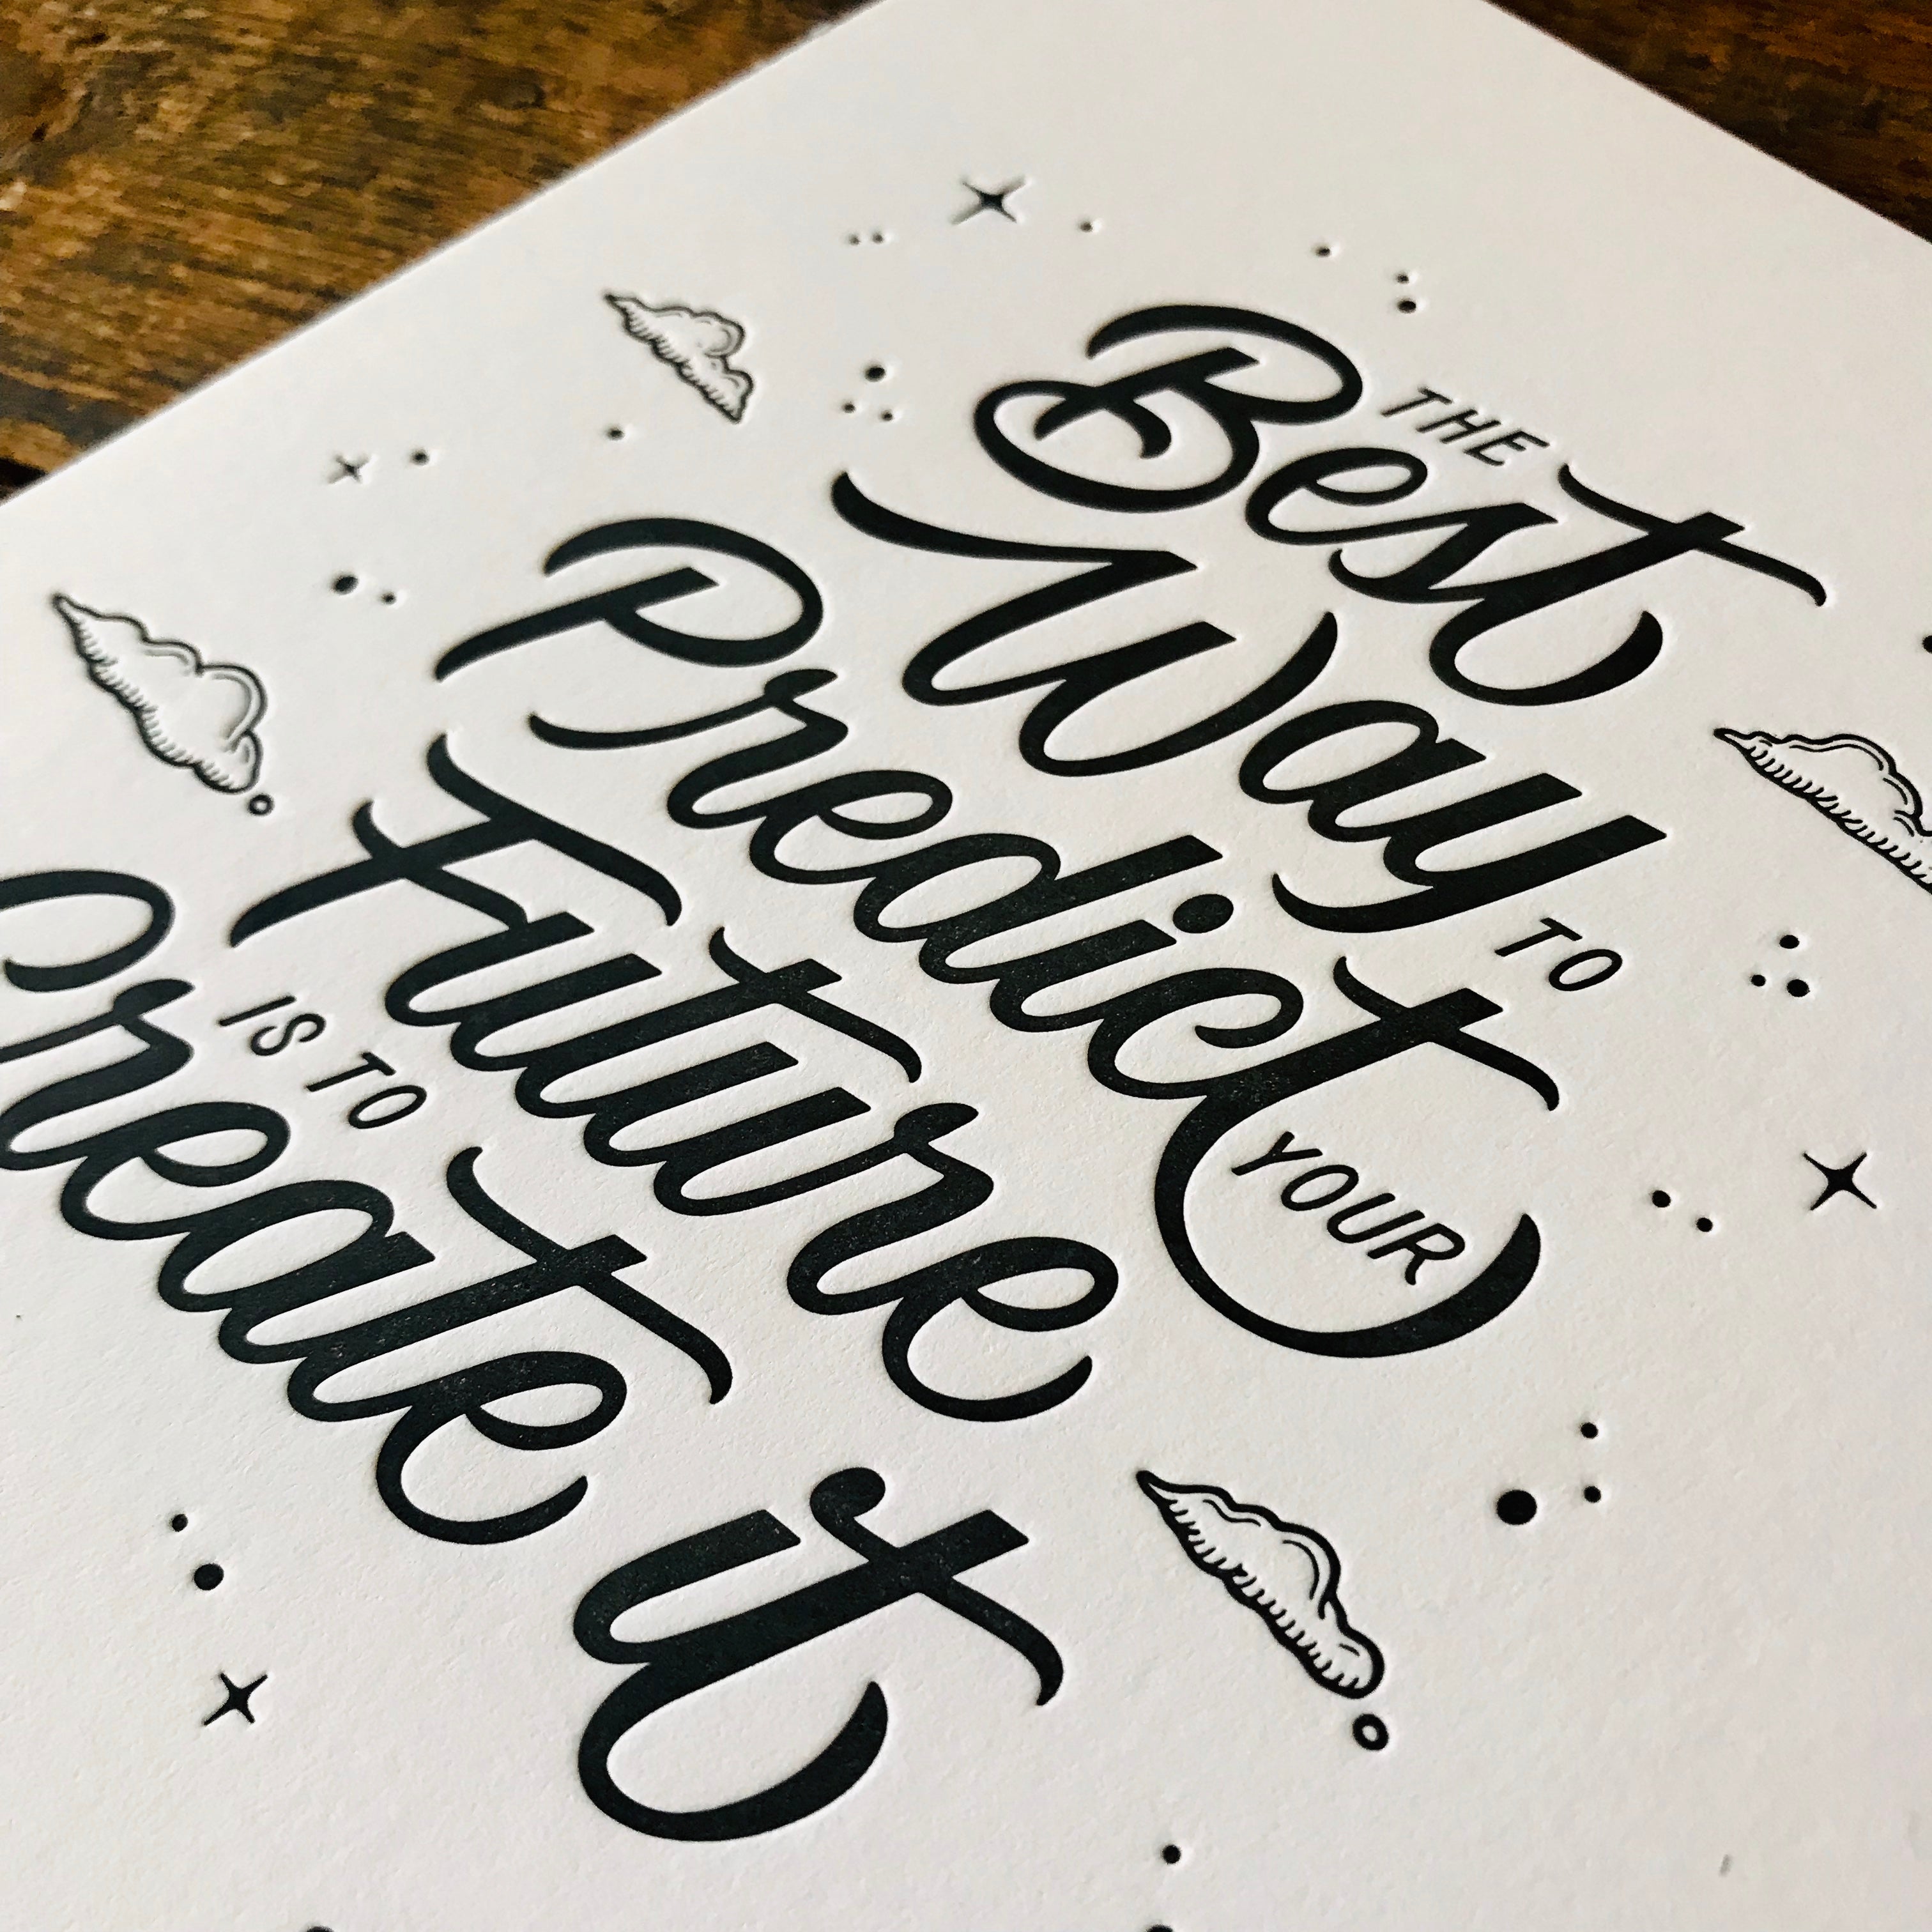 THE
Best
Way TO
Predict
YOUR
Future
IS TO
Create
it